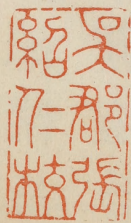 吳郡張
紹仁校